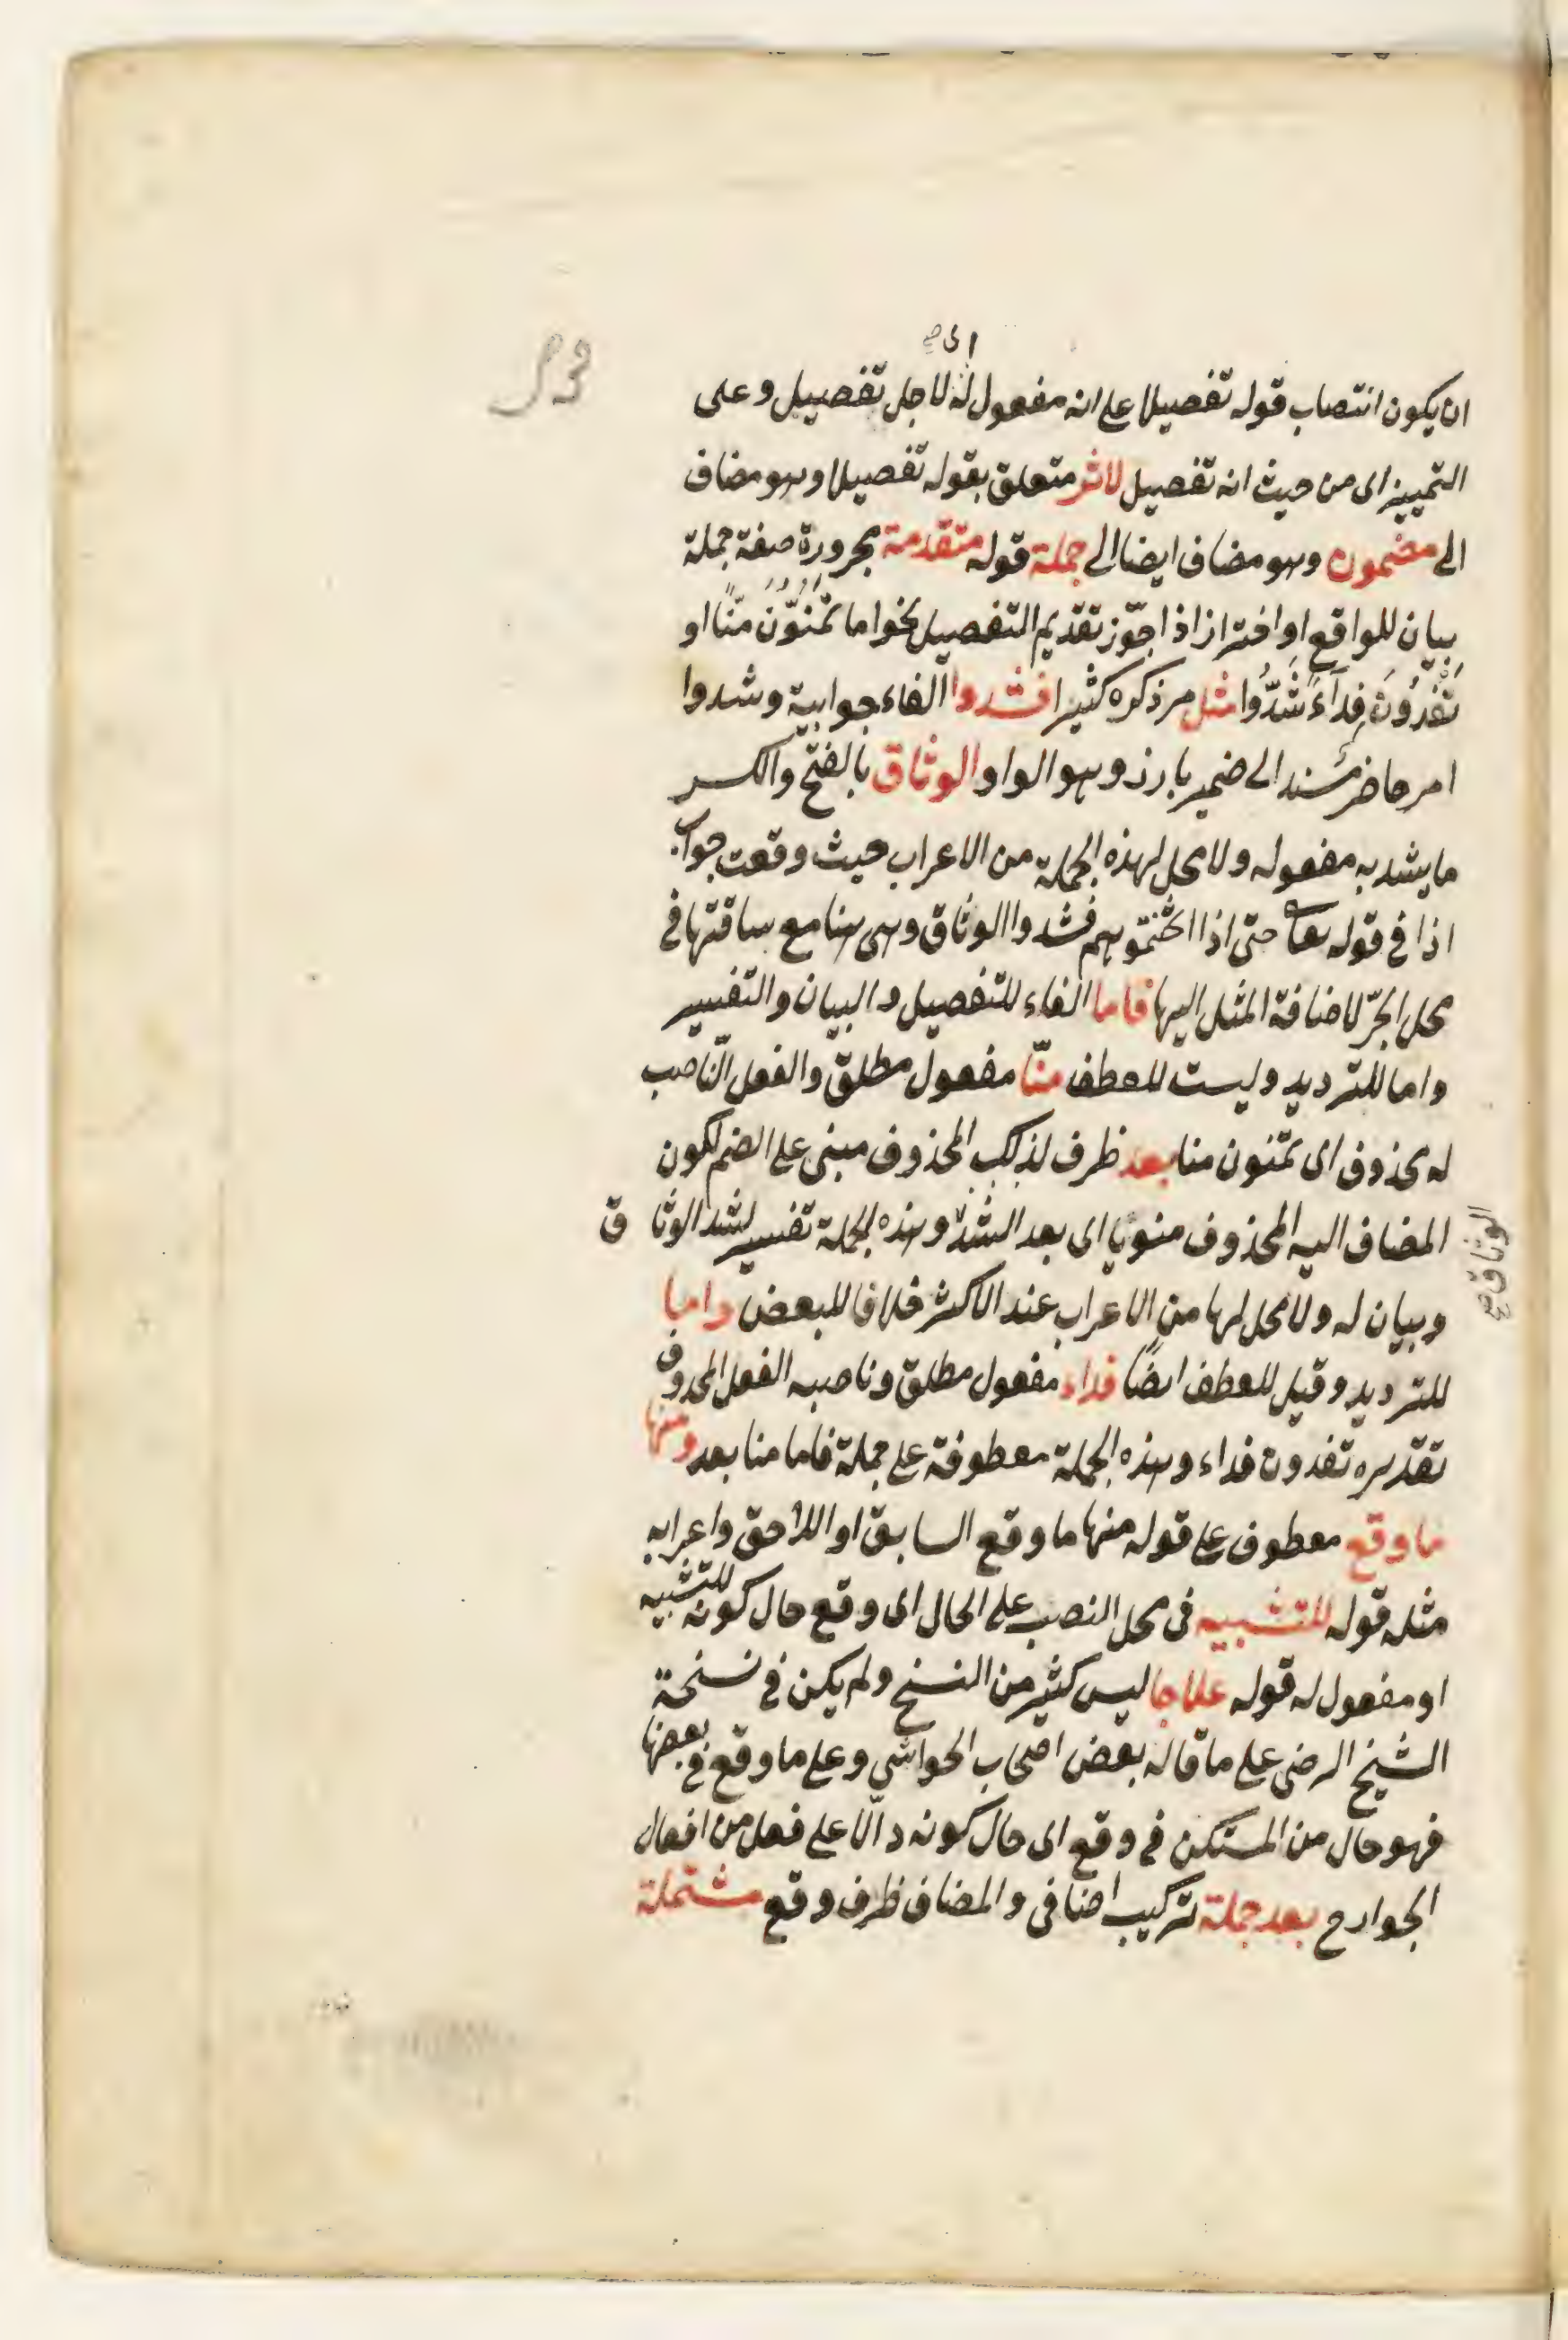 ای صح
ان يكون انتصاب قوله تفصيلا على انه مفعول له لاجل تفصيل وعلى
التمييز اى من حيث انه تفصيل لاثر متعلق بقوله تفصيلا وهو مضاف
الى مضمون وهو مضاف ايضا الى جملة قوله متقدمة مجرورة صفة جملة
بيان للواقع او افتراز اذا جوّز تقديم التفصيل نحو اما تمنّون منّا او
تفدون فدآء شدّوا مثل مر ذكره كثيرا فشدوا الفاء جوابية وشدوا
امر حاضر مسند الى ضمير بارز وهو الواو الوثاق بالفتح والكسر
ما يشد به مفعوله ولا محل لهذه الجملة من الاعراب حيث وقعت جواب
اذا فى قوله تعا حتى اذا اثخنتموهم فشدوا الوثاق وهى هنا مع ساقتها فى
محل الجرّ لاضافة المثل اليها فاما الفاء للتفصيل والبيان والتفسير
واما للترديد وليست للعطف منّا مفعول مطلق والفعل النّاصب
له محذوف اى تمنون منا بعد ظرف لذلك المحذوف مبنى على الضم لكون
المضاف اليه المحذوف منويا اى بعد الشدّ وهذه الجملة تفسير لشد الوثا ق
الوثاق صح
وبيان له ولا محل لها من الاعراب عند الاكثر خلافا للبعض واما
للترديد وقيل للعطف ايضًا فداء مفعول مطلق وناصبه الفعل المحذوف
تقديره تفدون فداء وهذه الجملة معطوفة على جملة فاما منا بعد ومنها
ما وقع معطوف على قوله منها ما وقع السابق او اللاحق واعرابه
مثله قوله للتشبيه فى محل النصب على الحال اى وقع حال كونه للتشبيه
او مفعول له قوله علاجا ليس كثير من النسخ ولم يكن فى نسخة
الشيخ الرضى على ما قاله بعض اصحاب الحواشي وعلى ما وقع فى بعضها
فهو حال من المستكن فى وقع اى حال كونه دالّا على فعل من افعال
الجوارح بعد جملة تركيب اضافى والمضاف ظرف وقع مشتملة